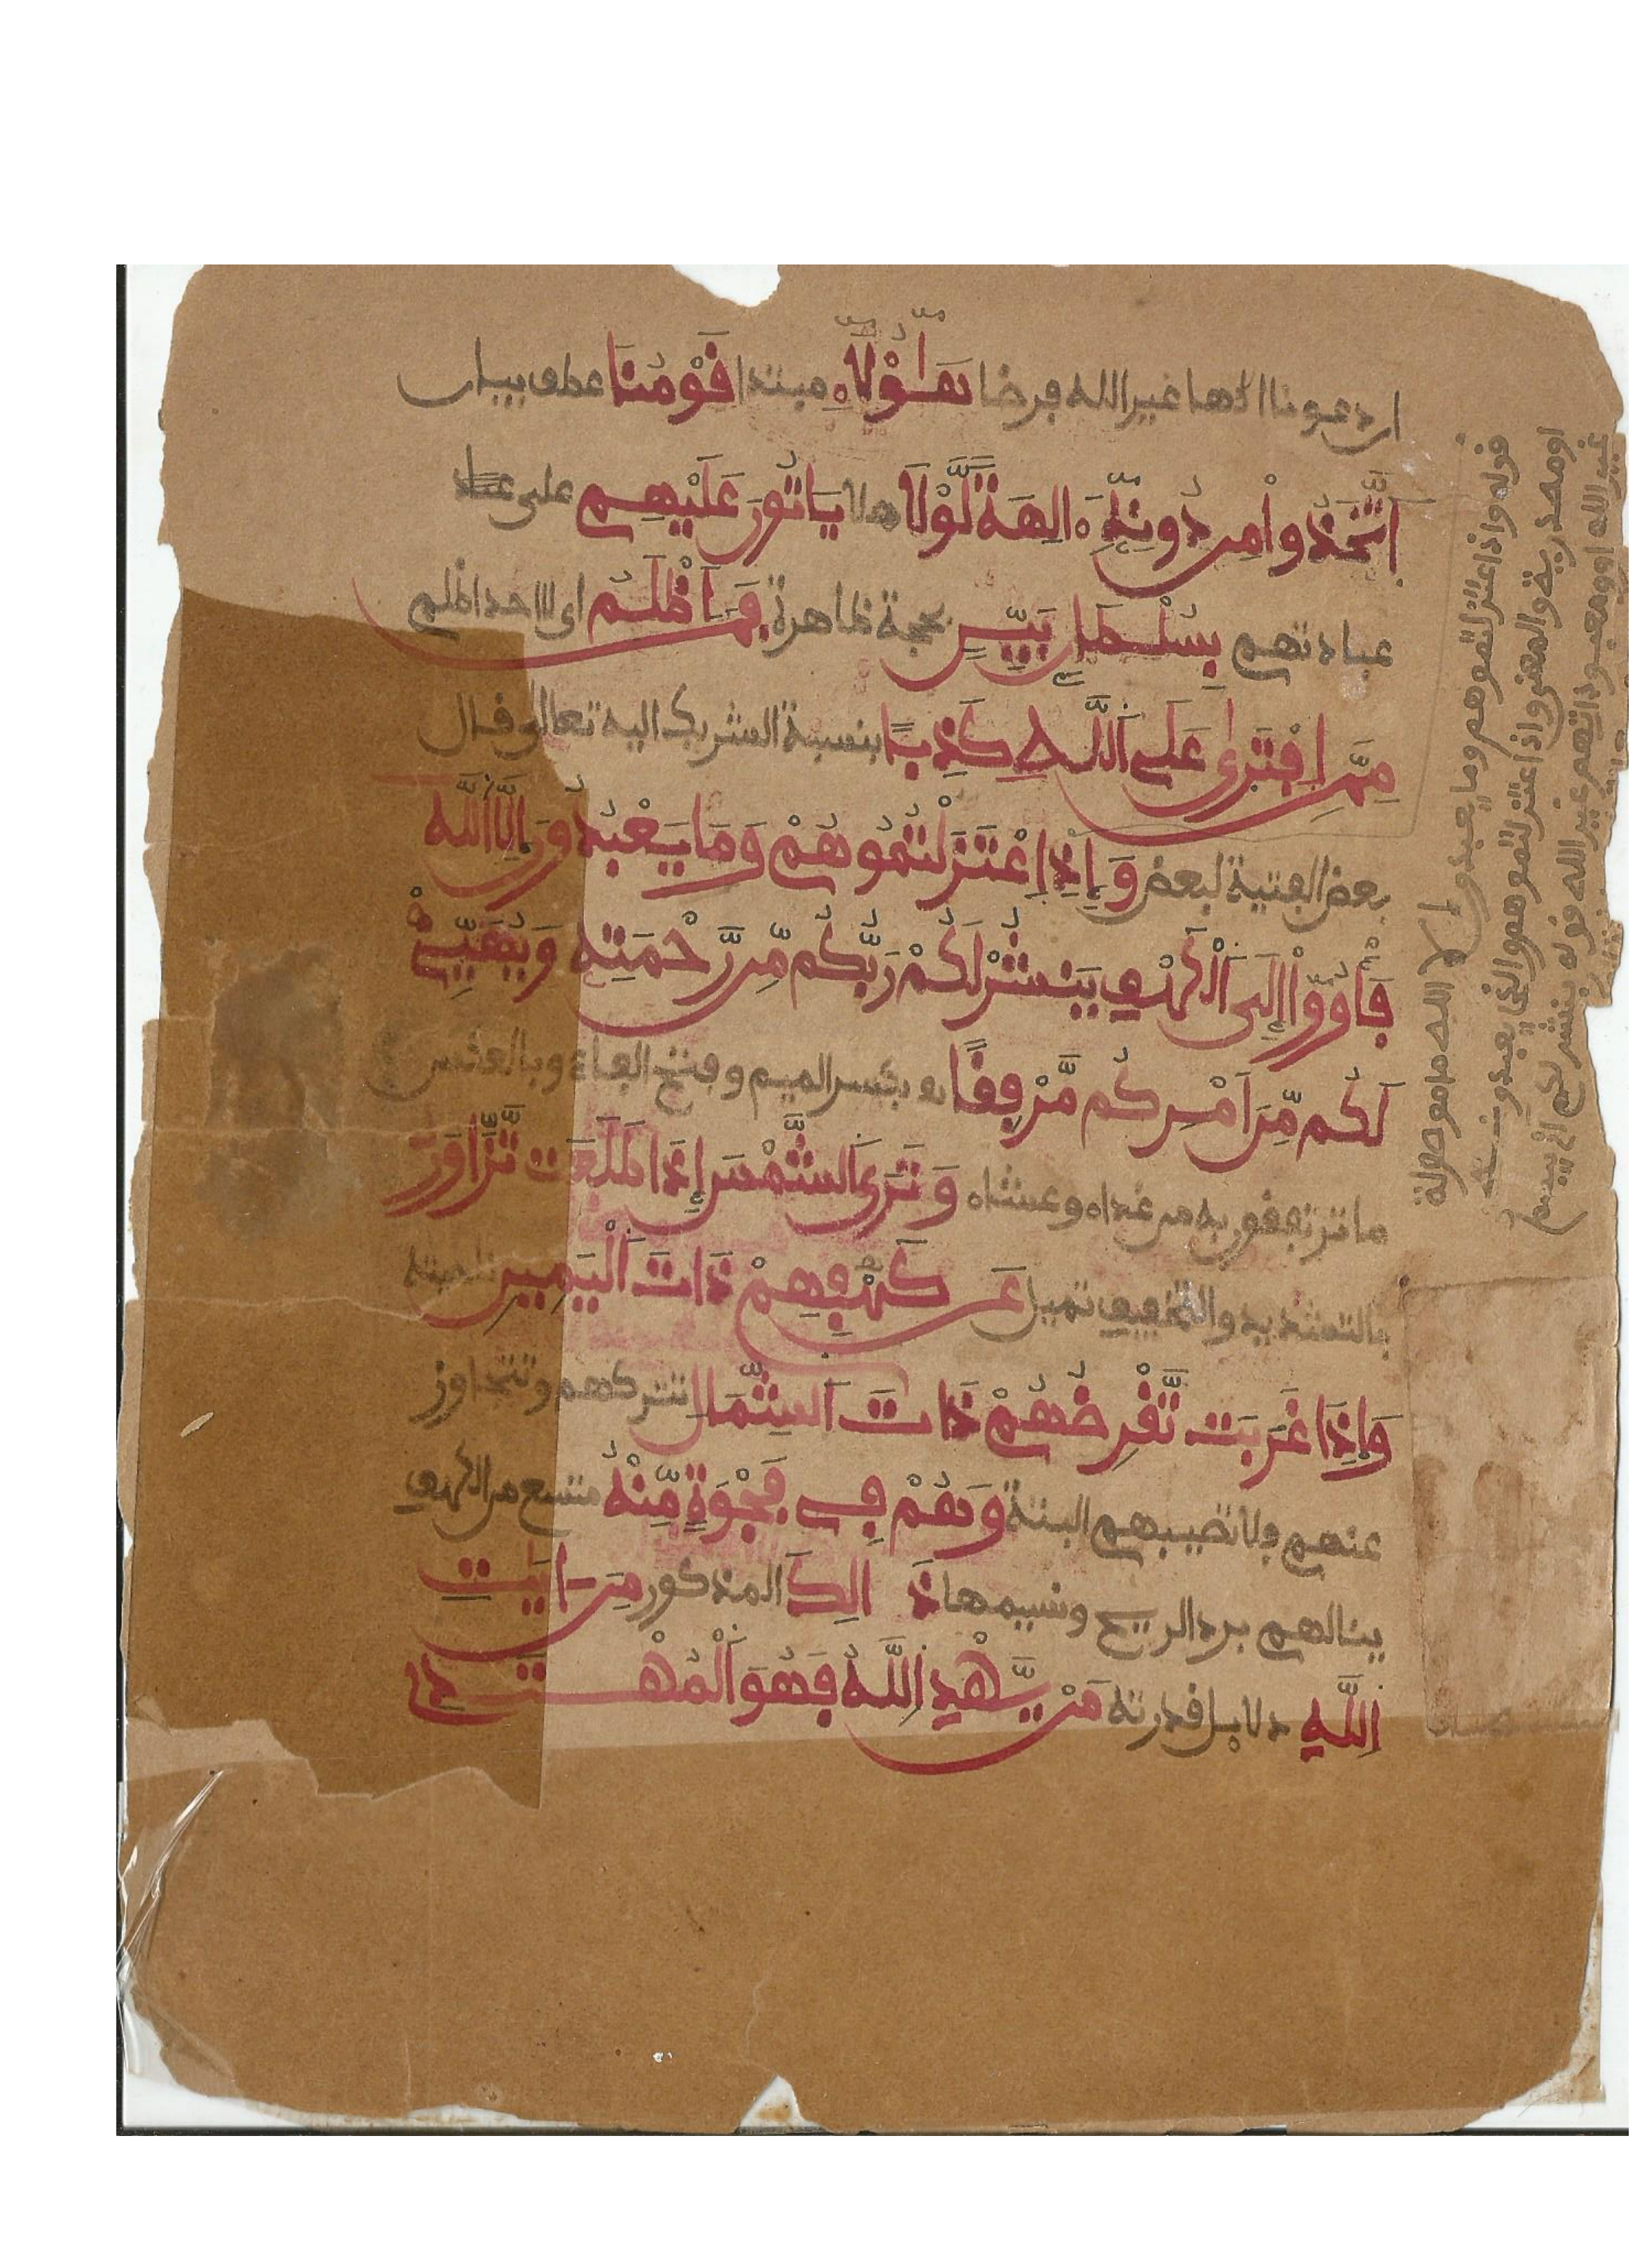 ان دعونا الها غير الله فرضا هَٰؤُلَاءِ مبتدا قَوْمُنَا عطف بيان
اَتَّخَذُوا مِن دُونِهِ ءَالِهَةً لَّوْلَا هلا يَاتُونَ عَلَيْهِم على
عبادتهم بِسُلْطَٰنٍ بَيِّنٍ بحجة ظاهرة فَمَنَ اَظْلَمُ اى لا احد اظلم
مِمَّنِ اِفْتَرَىٰ عَلَى اَللَّهِ كَذِبًا بنسبة الشريك اليه تعالى قال
بعض الفتية لبعض وَإِذِ اِعْتَزَلْتُمُوهُمْ وَمَا يَعْبُدُونَ إِلَّا اَللَّهَ
فَأْوُۥٓا إِلَى اَلْكَهْفِ يَنشُرْ لَكُمْ رَبُّكُم مِّن رَّحْمَتِهِ وَيُهَيِّئْ
لَكُم مِّنَ اَمْرِكُم مَّرْفِقًا بكسر الميم وفتح الفاء وبالعكس
ما ترتفقون به من غداء وعشاء وَتَرَى اَلشَّمْسَ إِذَا طَلَعَت تَّزَّاوَرُ
بالتشديد والتخفيف تميل عَن كَهْفِهِمْ ذَاتَ اَلْيَمِينِ ناحيته
وَإِذَا غَرَبَت تَّقْرِضُهُمْ ذَاتَ اَلشِّمَالِ تتركهم وتتجاوز
عنهم فلا تصيبهم البتة وَهُمْ فِي فَجْوَةٍ مِّنْهُ متسع من الكهف
ينالهم برد الريح ونسيمها ذَٰلِكَ المذكور مِنَ اٰيَٰتِ
اِللَّهِ دلايل قدرته مَنْ يَّهْدِ اِللَّهُ فَهُوَ اَلْمُهْتَدِ
قوله واذ اعتزلتموهم وما يعبدون
الا الله ما موصولة
او مصدرية والمعنى واذ اعتزلتموهم والذي يعبدون
غير الله او ومعبوداتهم غير الله قوله ينشر لكم اى يبسط